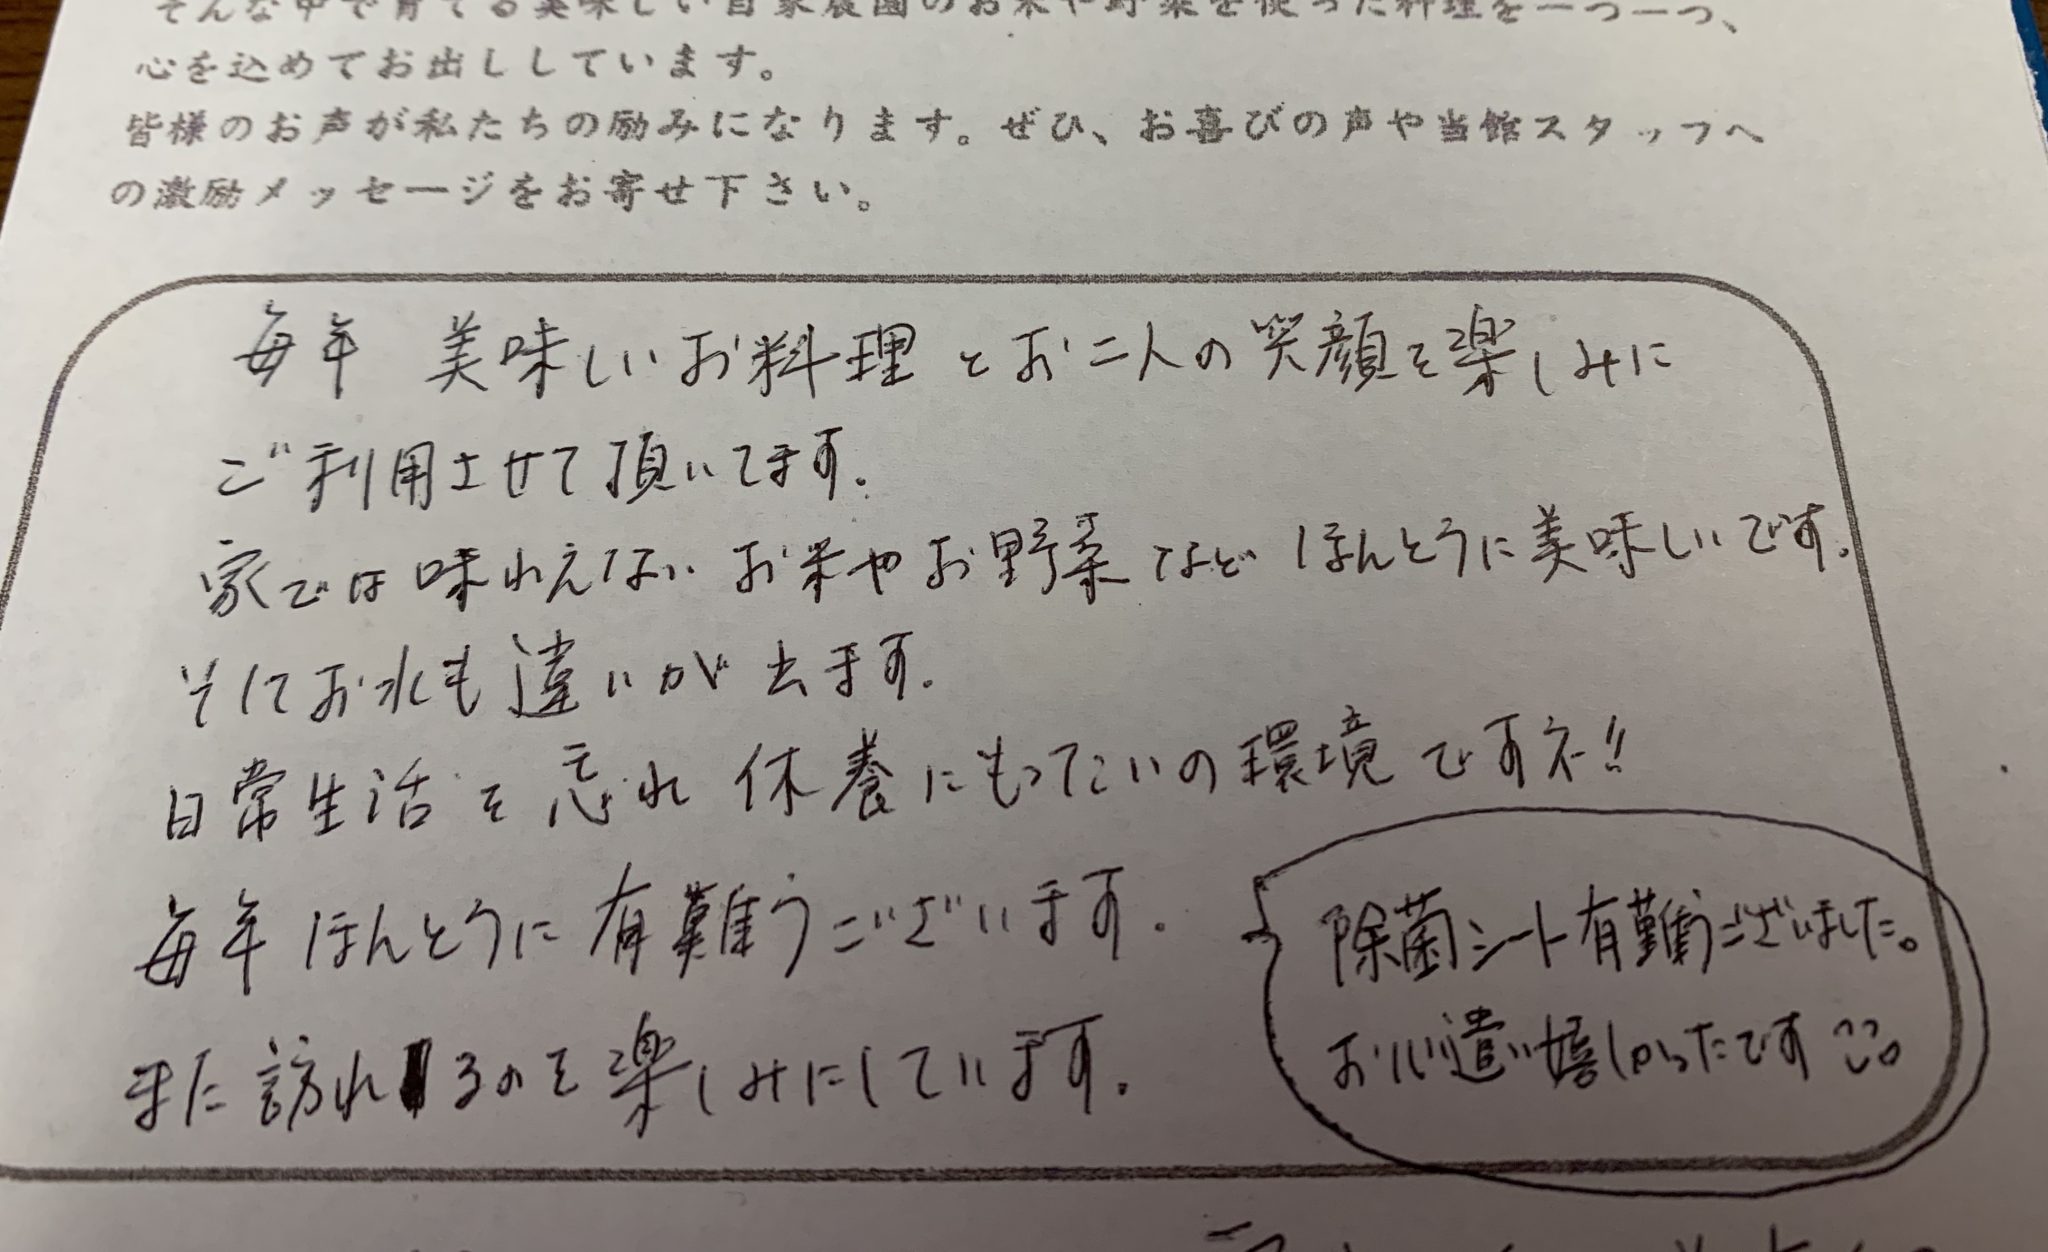 そんな中で育てる美味しい自家農園のお米や野菜を使った料理を一つ一つ、
心を込めてお出ししています。
皆様のお声が私たちの励みになります。ぜひ、お喜びの声や当館スタッフへ
の激励メッセージをお寄せ下さい。
毎年 美味しいお料理とお二人の笑顔を楽しみに
ご利用させて頂いてます.
家では味わえない お米やお野菜など ほんとうに美味しいです.
そしてお水も違いが出ます.
日常生活を忘れ 休養にもってこいの環境ですネ!!
毎年 ほんとうに有難うございます.
また訪れるのを楽しみにしています.
除菌シート有難うございました。
お心遣い嬉しかったです